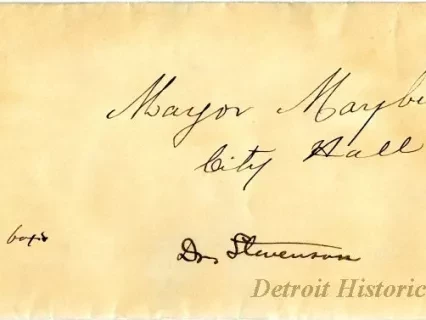 Mayor Maybu
City Hall
Dr. Stevenson
Detroit Historic